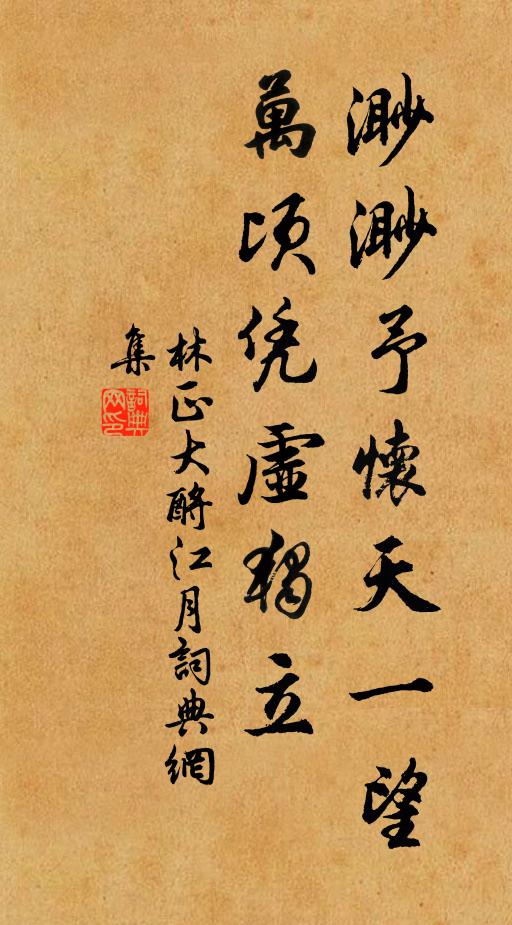 渺渺予懷天一望
萬頃凭虛獨立
林正大酹江月詞典網
集
詞典
网印